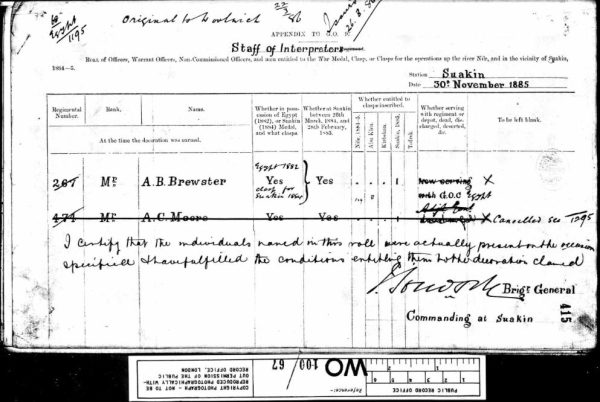 Original to Woolwich 22/3/86
Issued
26.8.86
68
Egypt
1195
APPENDIX TO G.O.
Staff of Interpreters
ROLL of Officers, Warrant Officers, Non-Commissioned Officers, and men entitled to the War Medal, Clasp, or Clasps for the operations up the river Nile, and in the vicinity of Suakin,
1884–5.
Station Suakin
Date 30th November 1885
Regimental Number.
Rank.
Name.
At the time the decoration was earned.
Whether in possession of Egypt (1882), or Suakin (1884) Medal, and what clasps.
Whether at Suakin between 26th March, 1884, and 28th February, 1885.
Whether entitled to clasps inscribed
Nile, 1884-5.
Abu Klea.
Kirbekan.
Suakin, 1885.
Tofrek.
Whether serving with regiment or depot, dead, discharged, deserted, &c.
To be left blank.
Egypt 1882
267 Mr. A.B. Brewster Yes Yes 1 now serving X
clasp for Suakin 1884
with G.O.C Egypt
171 Mr. A.C. Moore Yes Yes X Cancelled see 1295
I certify that the individuals named in this roll were actually present on the occasion
specified & have fulfilled the conditions entitling them to the decoration claimed
Brigr. General
Commanding at Suakin
415
COPYRIGHT PHOTOGRAPH - NOT TO BE
REPRODUCED PHOTOGRAPHICALLY WITH-
OUT PERMISSION OF THE PUBLIC
RECORD OFFICE, LONDON
Reference:-
WO 100/67
PUBLIC RECORD OFFICE
1 2 3 4 5 6